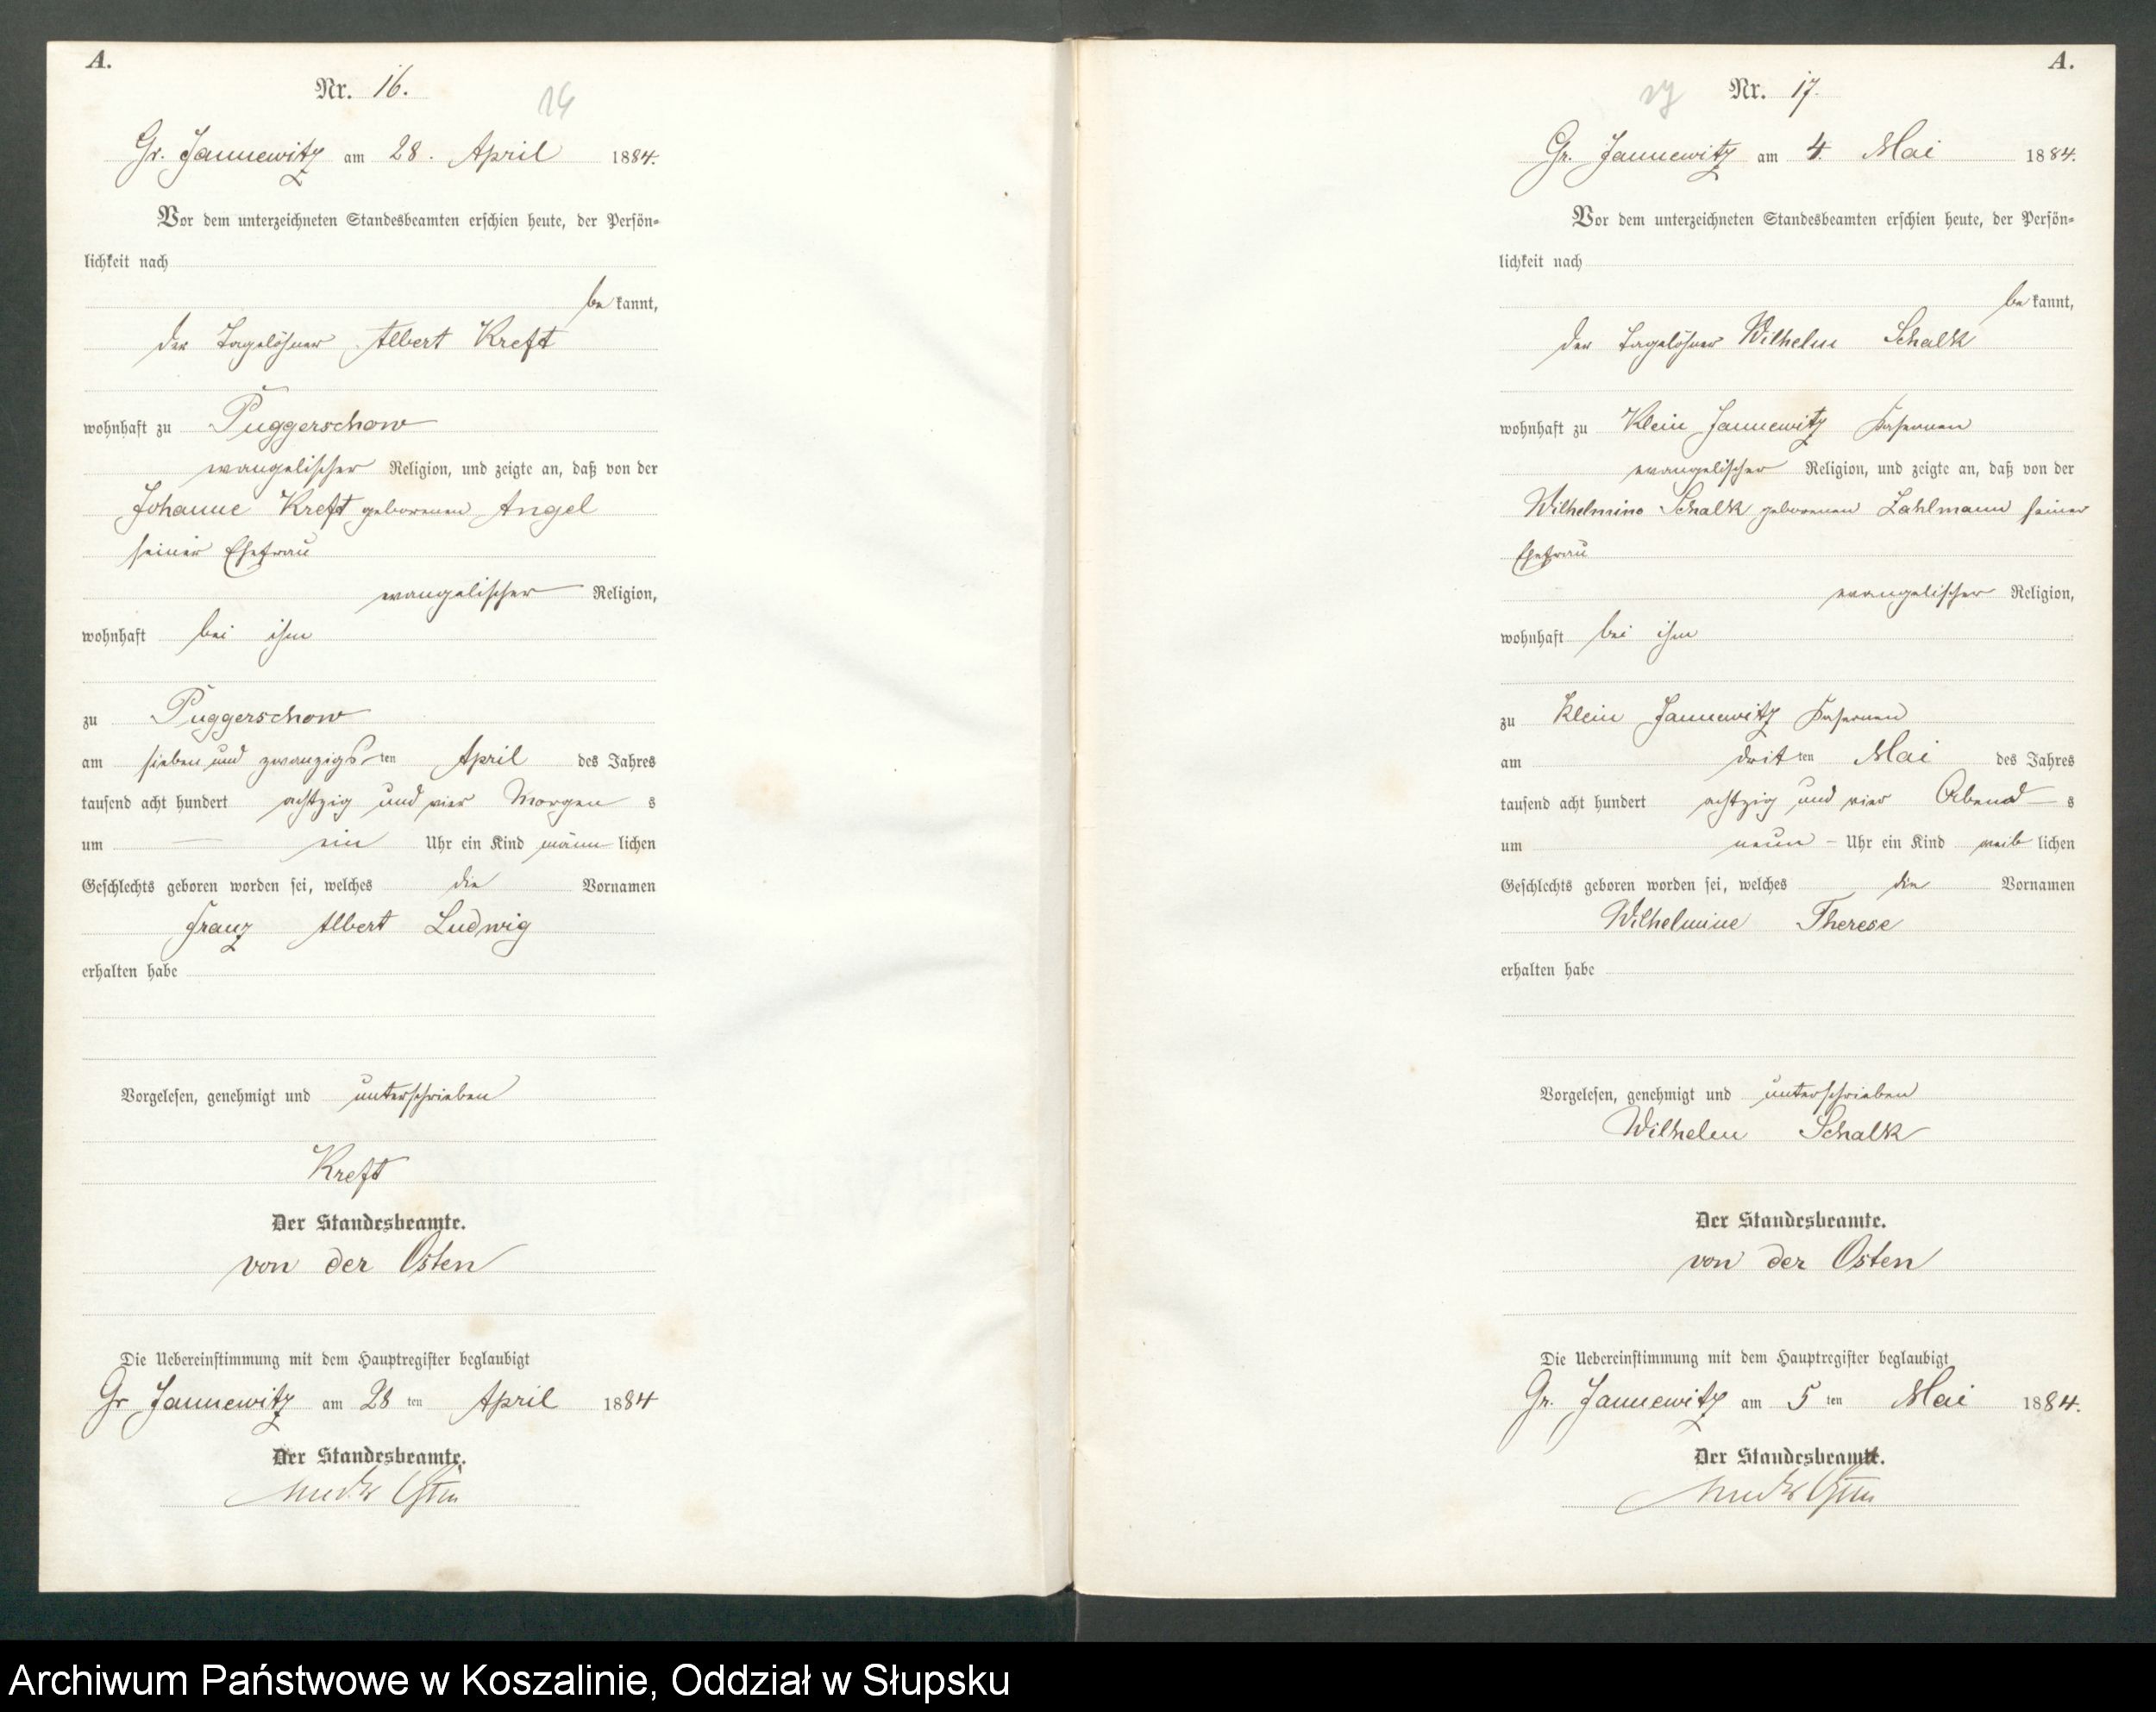 A.
Nr. 16.
14
Gr. Jannewitz am 28. April 1884.
Vor dem unterzeichneten Standesbeamten erschien heute, der Persön-
lichkeit nach
be kannt,
der Tagelöhner Albert Kreft
wohnhaft zu Puggerschow
evangelischer Religion, und zeigte an, daß von der
Johanne Kreft geborenen Angel
seiner Ehefrau
evangelischer Religion,
wohnhaft bei ihm
zu Puggerschow
am sieben und zwanzigsten April des Jahres
tausend acht hundert achtzig und vier Morgens
um ein Uhr ein Kind männlichen
Geschlechts geboren worden sei, welches die Vornamen
Franz Albert Ludwig
erhalten habe
Vorgelesen, genehmigt und unterschrieben
Kreft
Der Standesbeamte.
von der Osten
Die Uebereinstimmung mit dem Hauptregister beglaubigt
Gr Jannewitz am 28 ten April 1884
Der Standesbeamte.
von der Osten
A.
Nr. 17.
Gr. Jannewitz am 4. Mai 1884.
Vor dem unterzeichneten Standesbeamten erschien heute, der Persön-
lichkeit nach
be kannt,
der Tagelöhner Wilhelm Schalk
wohnhaft zu Klein Jannewitz
evangelischer Religion, und zeigte an, daß von der
Wilhelmine Schalk geborenen Lahlmann seiner
Ehefrau
evangelischer Religion,
wohnhaft bei ihm
zu Klein Jannewitz
am dritten Mai des Jahres
tausend acht hundert achtzig und vier Abend s
um neun Uhr ein Kind weiblichen
Geschlechts geboren worden sei, welches die Vornamen
Wilhelmine Therese
erhalten habe
Vorgelesen, genehmigt und unterschrieben
Wilhelm Schalk
Der Standesbeamte.
von der Osten
Die Uebereinstimmung mit dem Hauptregister beglaubigt
Gr. Jannewitz am 5 ten Mai 1884.
Der Standesbeamte.
von der Osten
Archiwum Państwowe w Koszalinie, Oddział w Słupsku